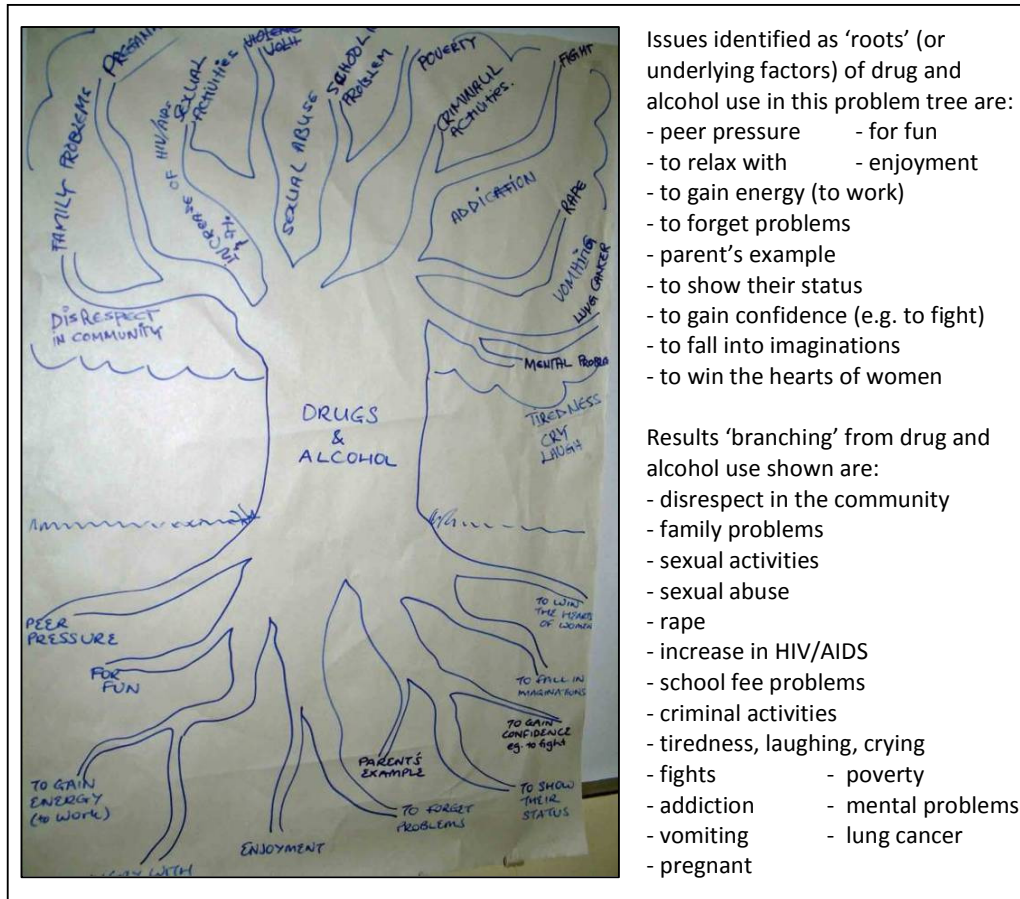 FAMILY PROBLEMS
PREGNAN
INCREASE OF HIV/AIDS
SEXUAL
ACTIVITIES
SEXUAL ABUSE
SCHOOL
PROBLEM
POVERTY
CRIMINAL
ACTIVITIES.
FIGHT
ADDICATION
RAPE
VOMITING
LUNG CANCER
DISRESPECT
IN COMMUNITY
MENTAL PROBLE
TIREDNESS
CRY
LAUGH
DRUGS
&
ALCOHOL
PEER
PRESSURE
FOR
FUN
TO GAIN
ENERGY
(to WORK)
WITH
ENJOYMENT
TO FORGET
PROBLEMS
PARENT'S
EXAMPLE
TO SHOW
THEIR
STATUS
TO GAIN
CONFIDENCE
eg. to fight
TO FALL IN
IMAGINATIONS
TO WIN
THE HEARTS
OF WOMEN
Issues identified as ‘roots’ (or
underlying factors) of drug and
alcohol use in this problem tree are:
- peer pressure - for fun
- to relax with - enjoyment
- to gain energy (to work)
- to forget problems
- parent’s example
- to show their status
- to gain confidence (e.g. to fight)
- to fall into imaginations
- to win the hearts of women
Results ‘branching’ from drug and
alcohol use shown are:
- disrespect in the community
- family problems
- sexual activities
- sexual abuse
- rape
- increase in HIV/AIDS
- school fee problems
- criminal activities
- tiredness, laughing, crying
- fights - poverty
- addiction - mental problems
- vomiting - lung cancer
- pregnant